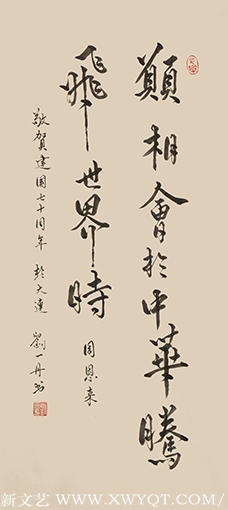 願相會於中華騰
飛世界時
周恩来
敬賀建国七十周年 於大連
劉一丹书
新文艺 WWW.XWYQT.COM/